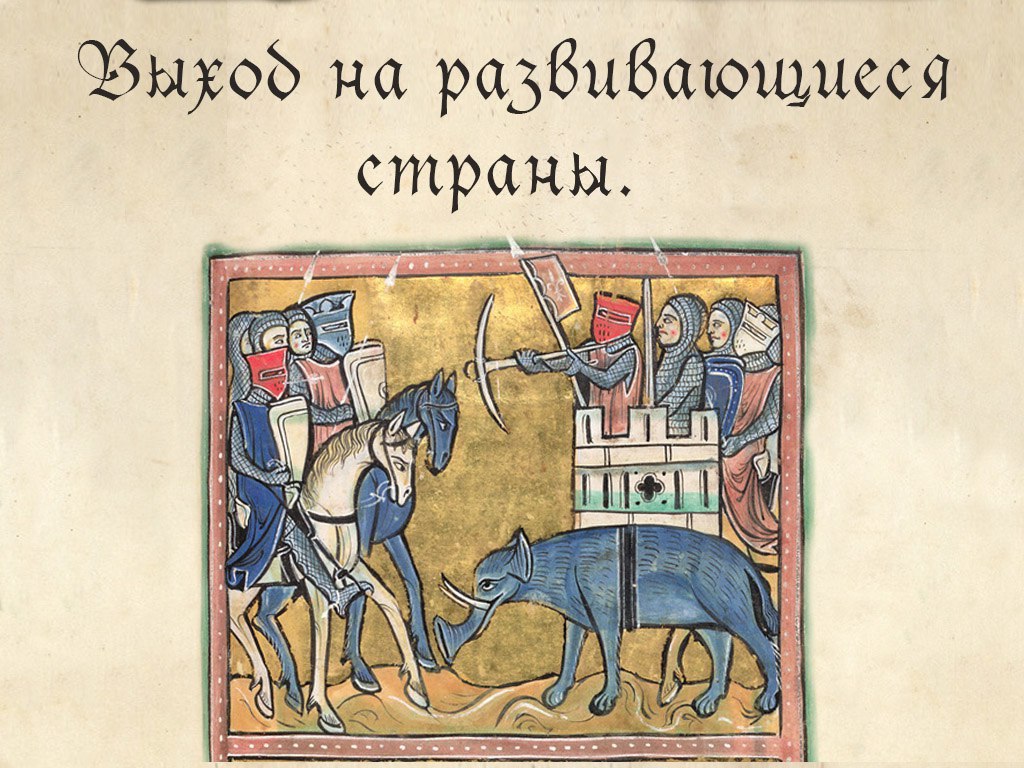 Выход на развивающиеся
страны.